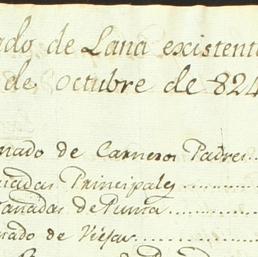 ado de Lana existent
de octubre de 824
nado de Carneros Padres
nadas Principales
anadas de Punta
nado de Viejas